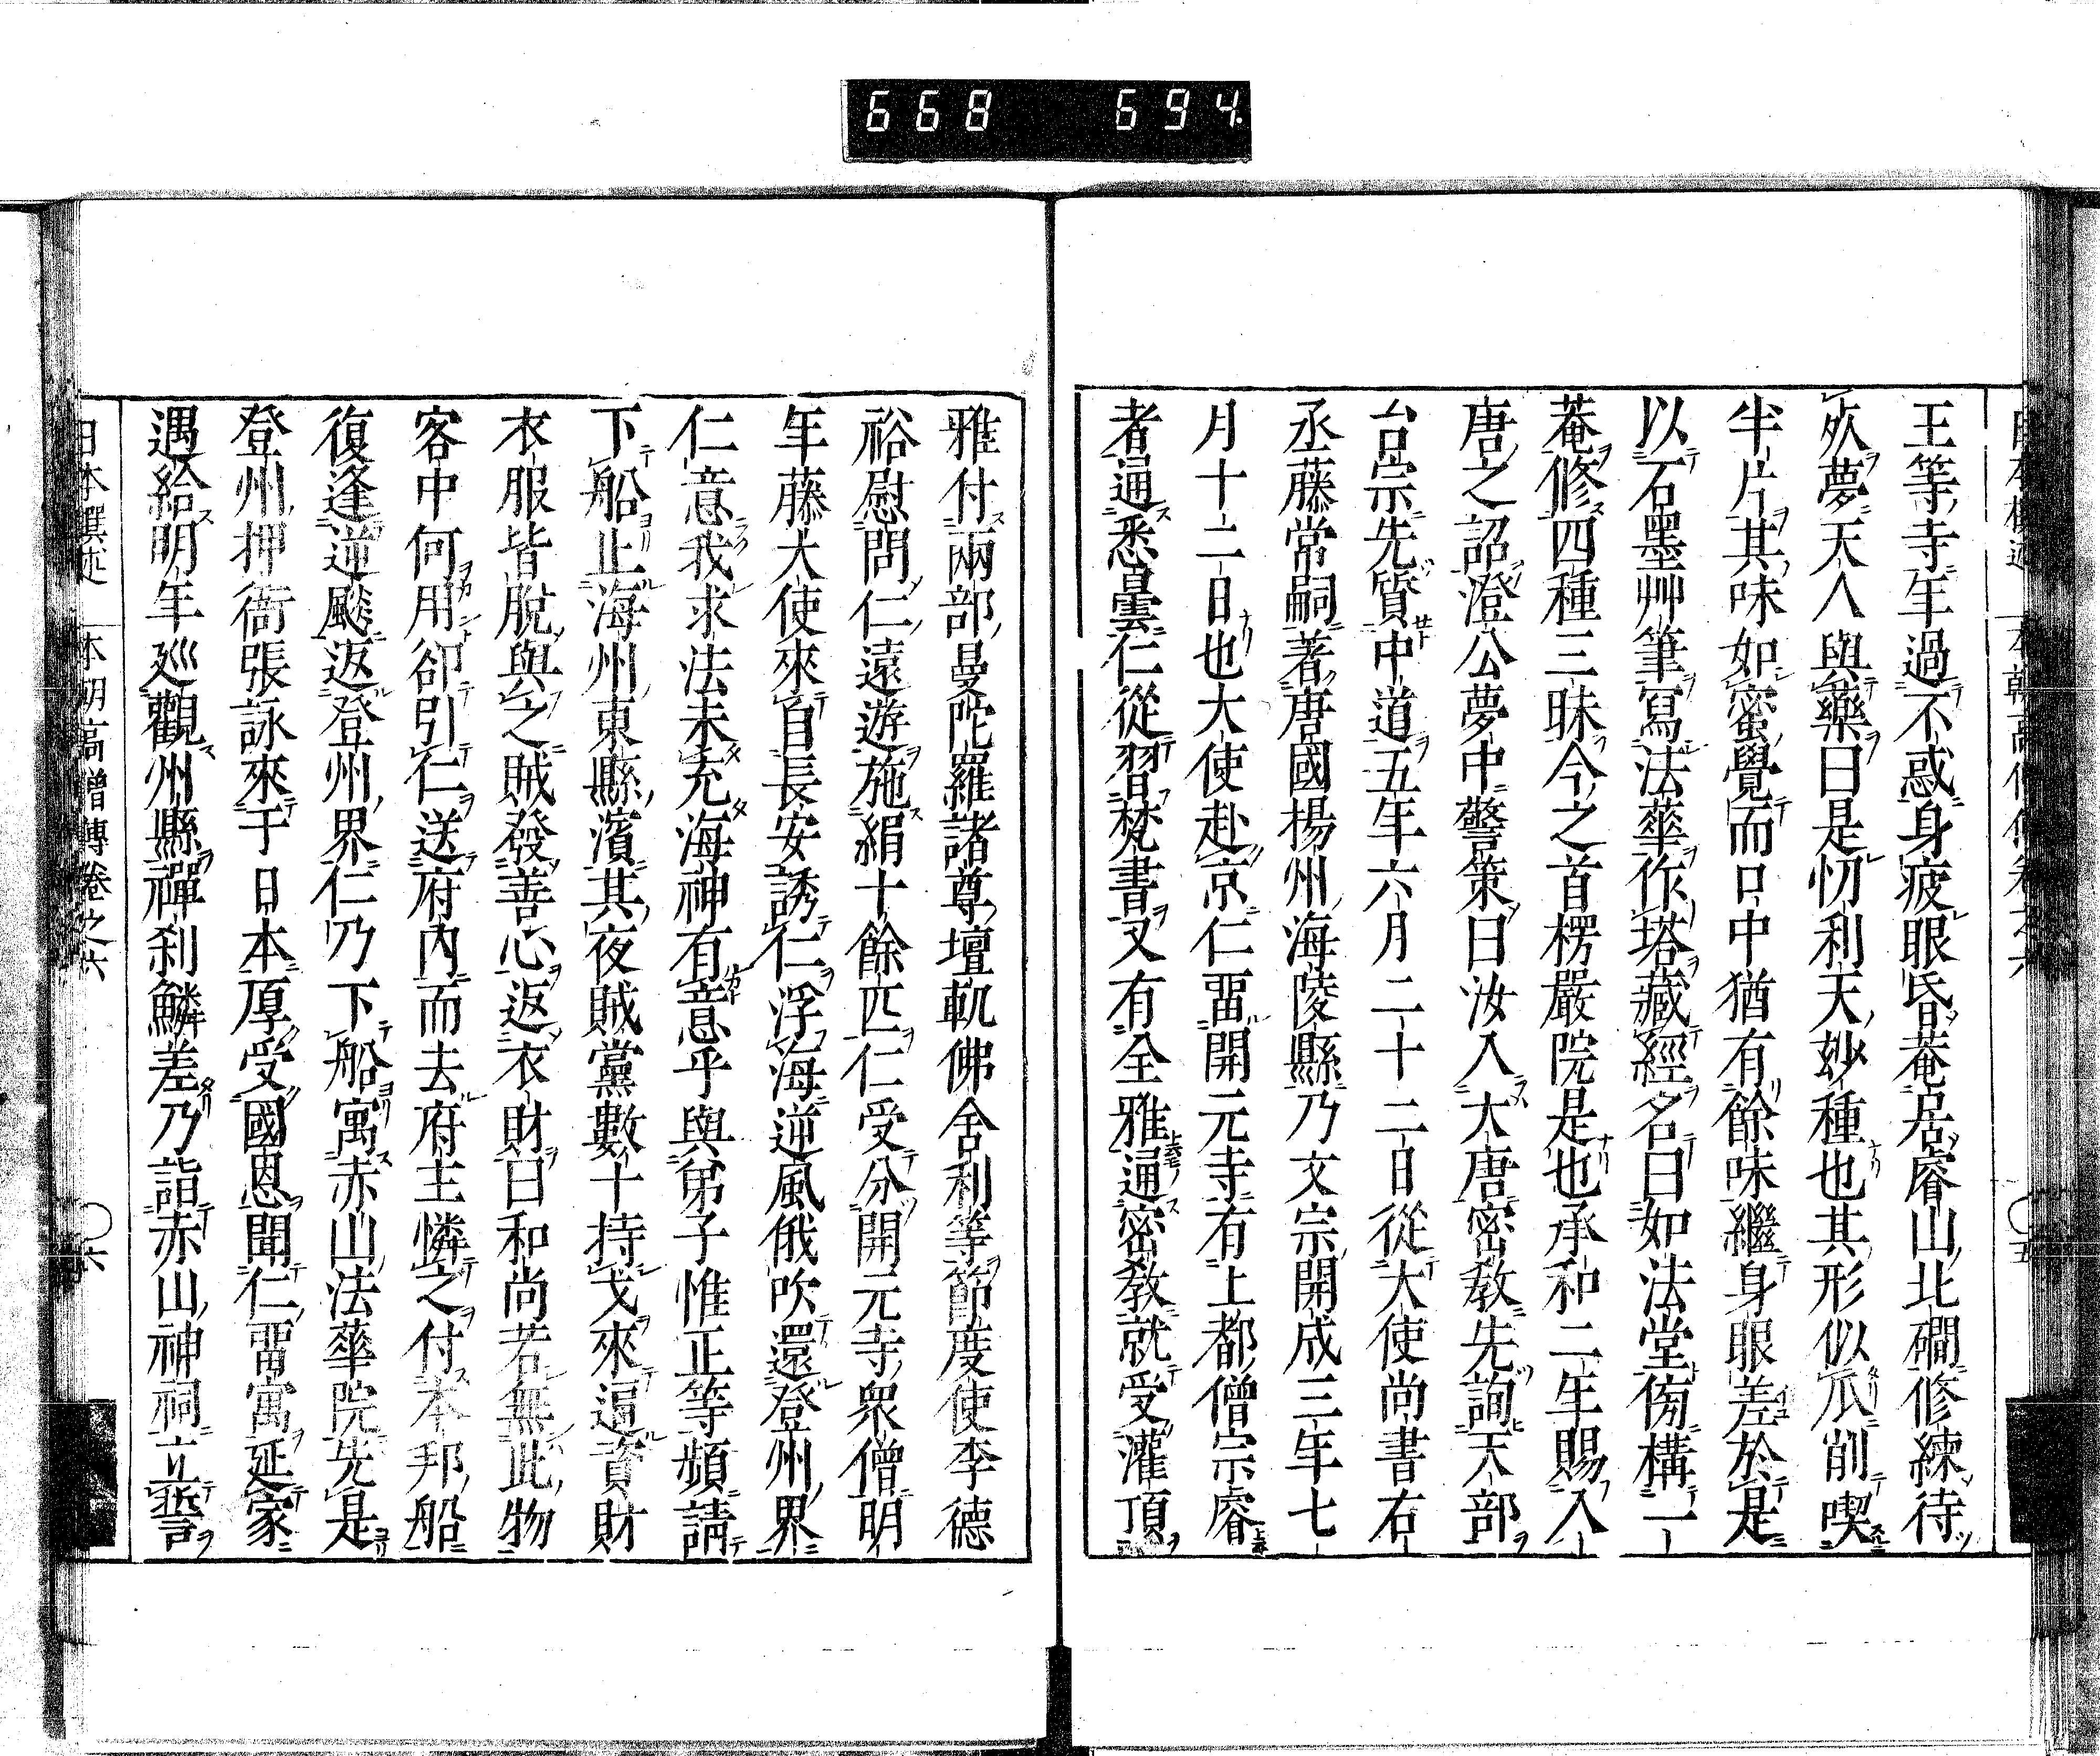 668 694
王等寺年過不惑身疲眼昏菴居睿山北磵修練待
夾夢天人與藥曰是忉利天妙種也其形似瓜削喫
半片其味如蜜覺而口中猶有餘味繼身眼差於是
以石墨艸筆寫法華作塔藏經名曰如法堂傍構一
菴修四種三昧今之首楞嚴院是也承和二年賜入
唐之詔澄公夢中警策曰汝入大唐密教先詢天部
台宗先質中道五年六月二十二日從大使尚書右
丞藤常嗣著唐國揚州海陵縣乃文宗開成三年七
月十二日也大使赴京仁畱開元寺有上都僧宗睿
者通悉曇仁從習梵書又有全雅通密教就受灌頂
雅付兩部曼陀羅諸尊壇軌佛舍利等節度使李德
裕慰問仁遠遊施絹十餘匹仁受分開元寺衆僧明
年藤大使來自長安誘仁浮海逆風俄吹還登州界
仁意我求法未充海神有意乎與弟子惟正等頻請
下船止海州東縣濱其夜賊黨數十持戈來逼資財
衣服皆脫與之賊發善心返衣財曰和尚若無此物
客中何用卻引仁送府內而去府主憐之付本邦船
復逢逆飈返登州界仁乃下船寓赤山法華院先是
登州押衙張詠來于日本厚受國恩聞仁畱寓延家
遇給明年巡觀州縣禪刹鱗差乃詣赤山神祠立誓
日本撰述 本朝高僧傳卷之六 〇六